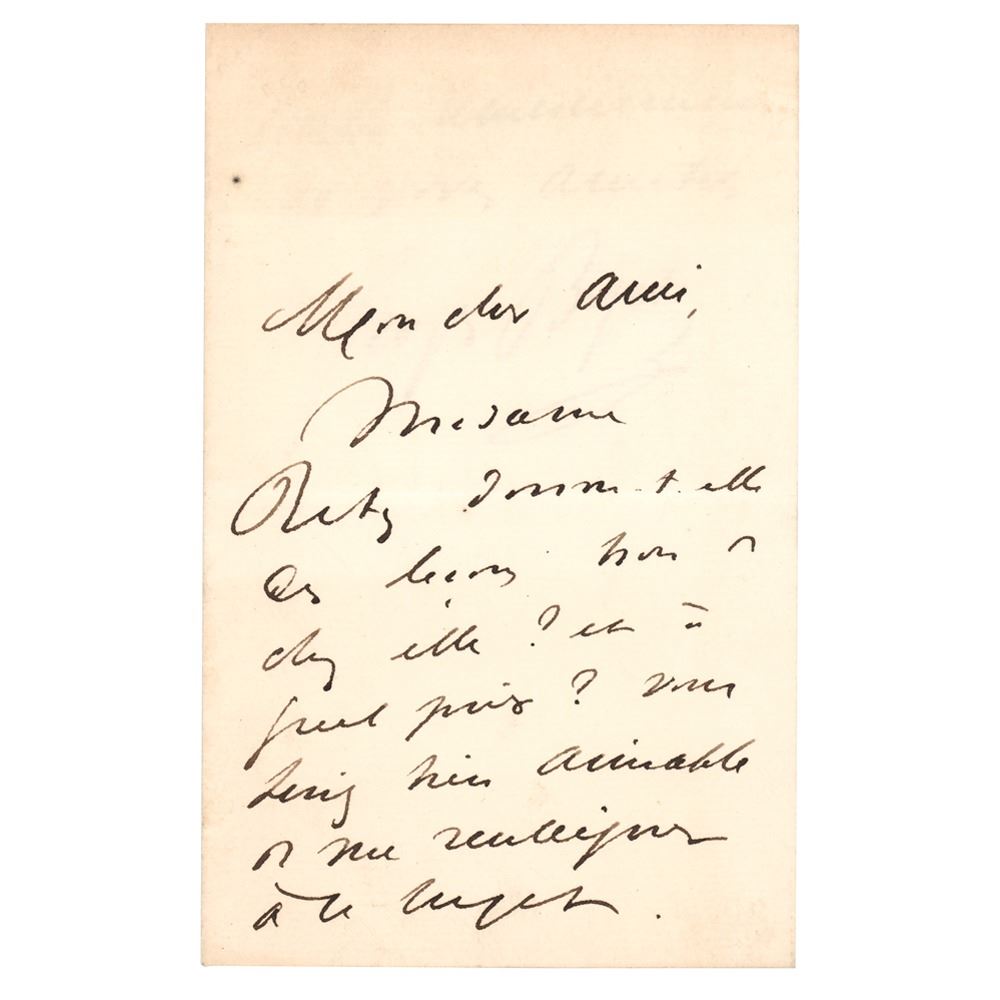 Mon cher ami,
Madame
Rety donne-t-elle
des leçons hors de
chez elle ? et à
quel prix ? Vous
seriez bien aimable
de me renseigner
à ce sujet.